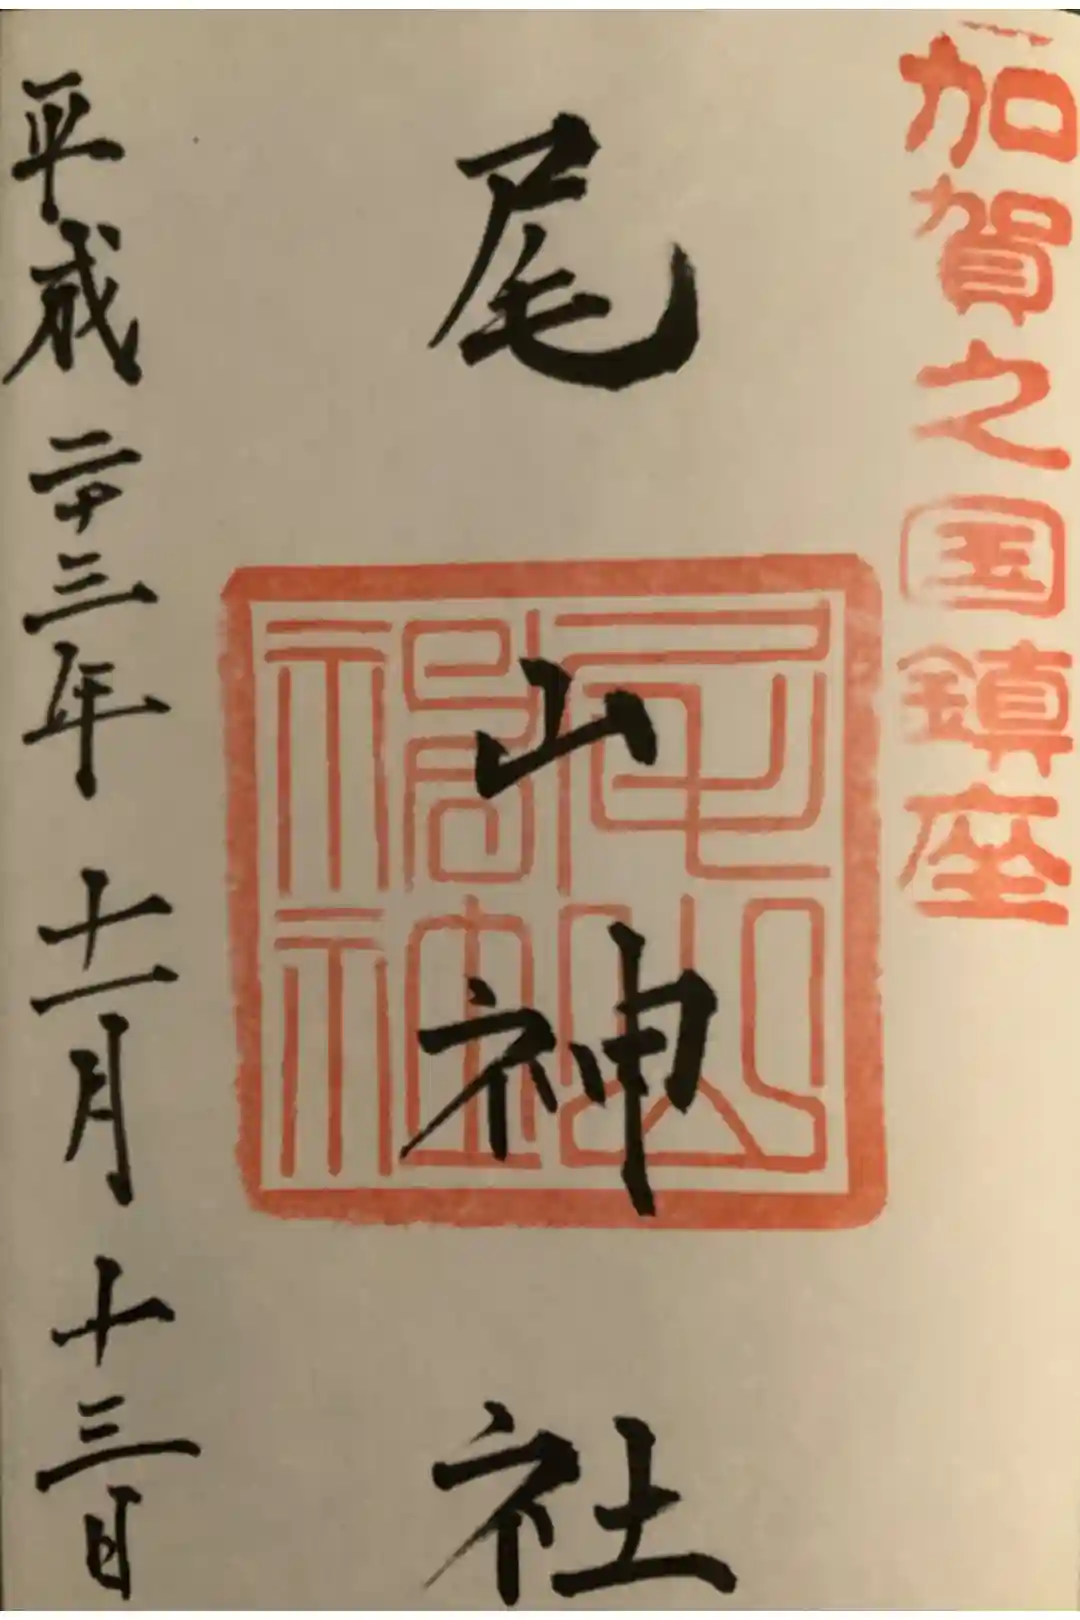 加賀之国鎮座
尾山神社
尾山神社
平成二十三年十一月十三日